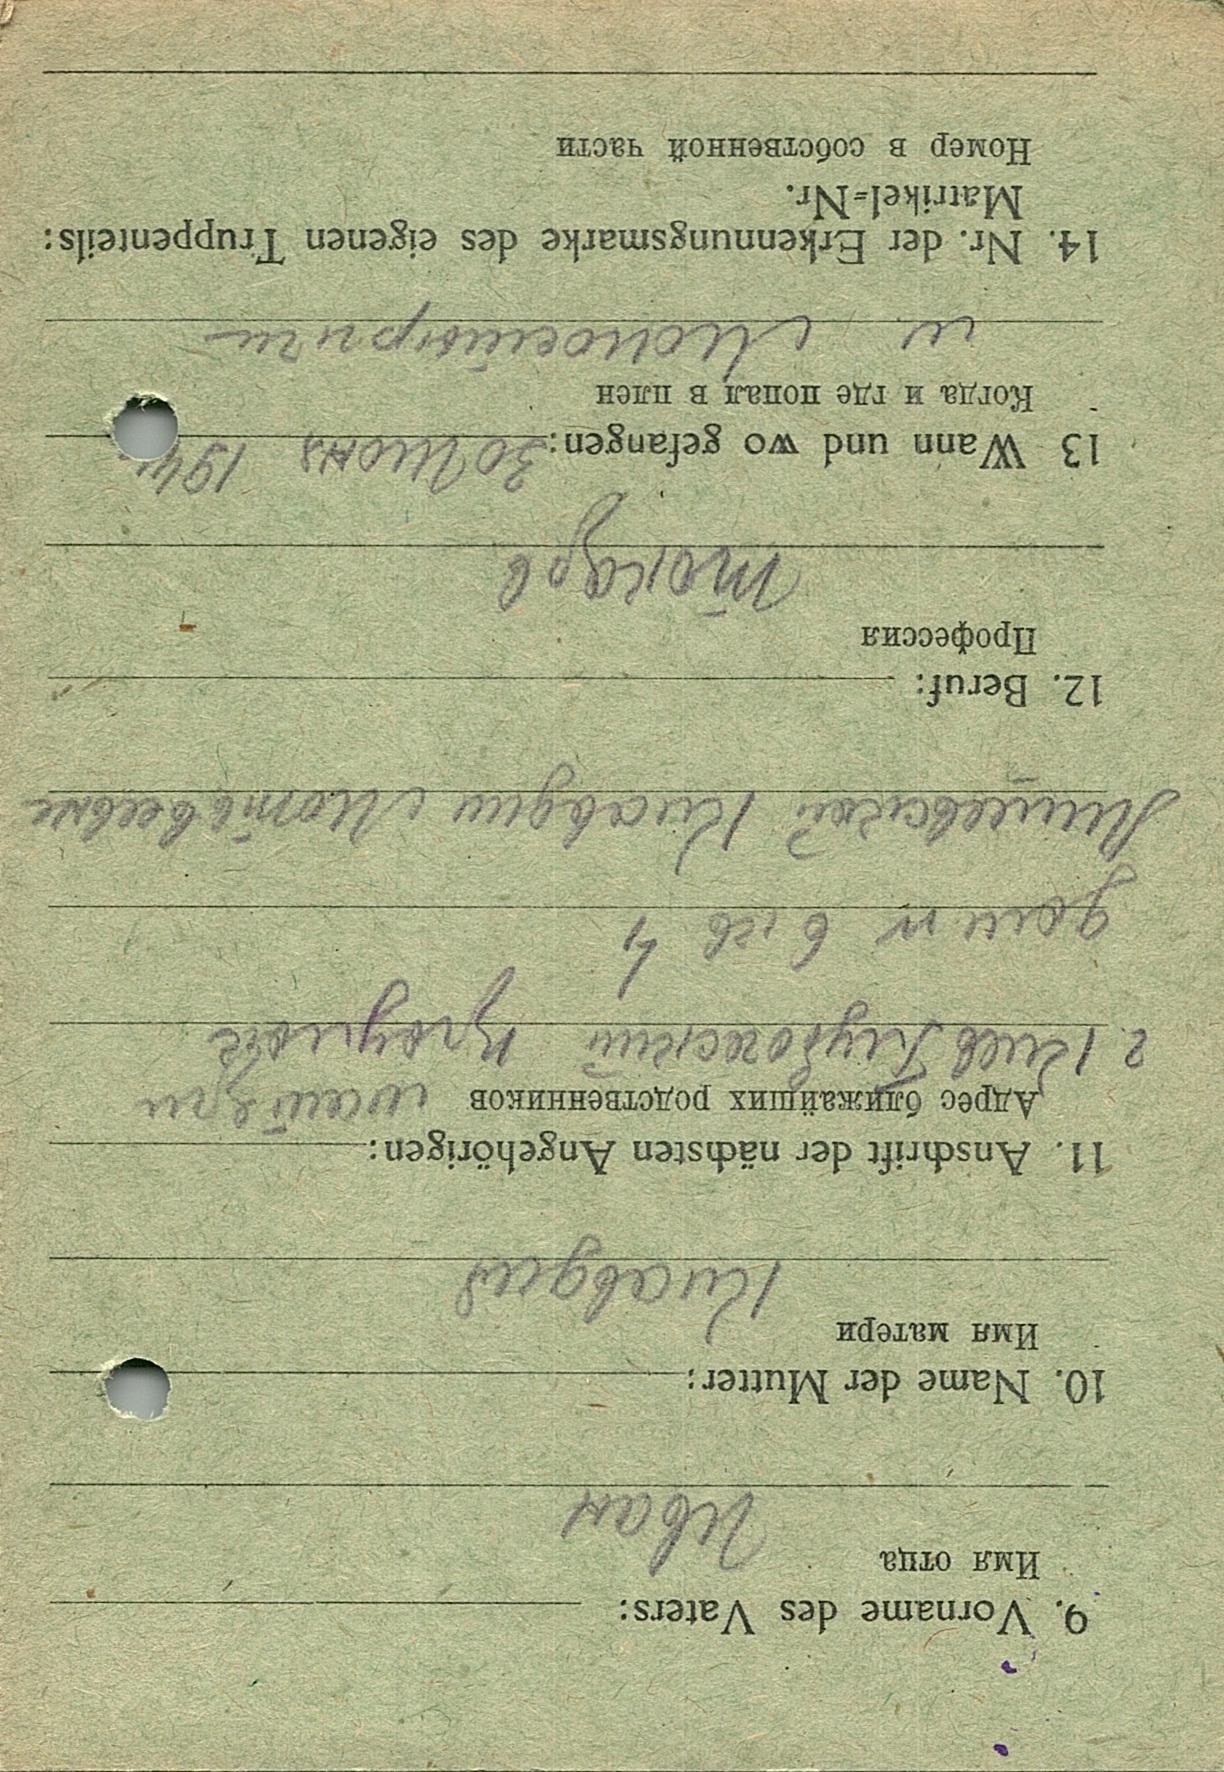 9. Vorname des Vaters:
Имя отца
Иван
10. Name der Mutter:
Имя матери
Клавдия
11. Anschrift der nächsten Angehörigen:
Адрес ближайших родственников матери
г. Киев
дом № 6 кв 4
Клавдии Мотвеевне
12. Beruf:
Профессия
токарь
13 Wann und wo gefangen: 30 Июня 194
Когда и где попал в плен
м
14. Nr. der Erkennungsmarke des eigenen Truppenteils:
Matrikel-Nr.
Номер в собственной части